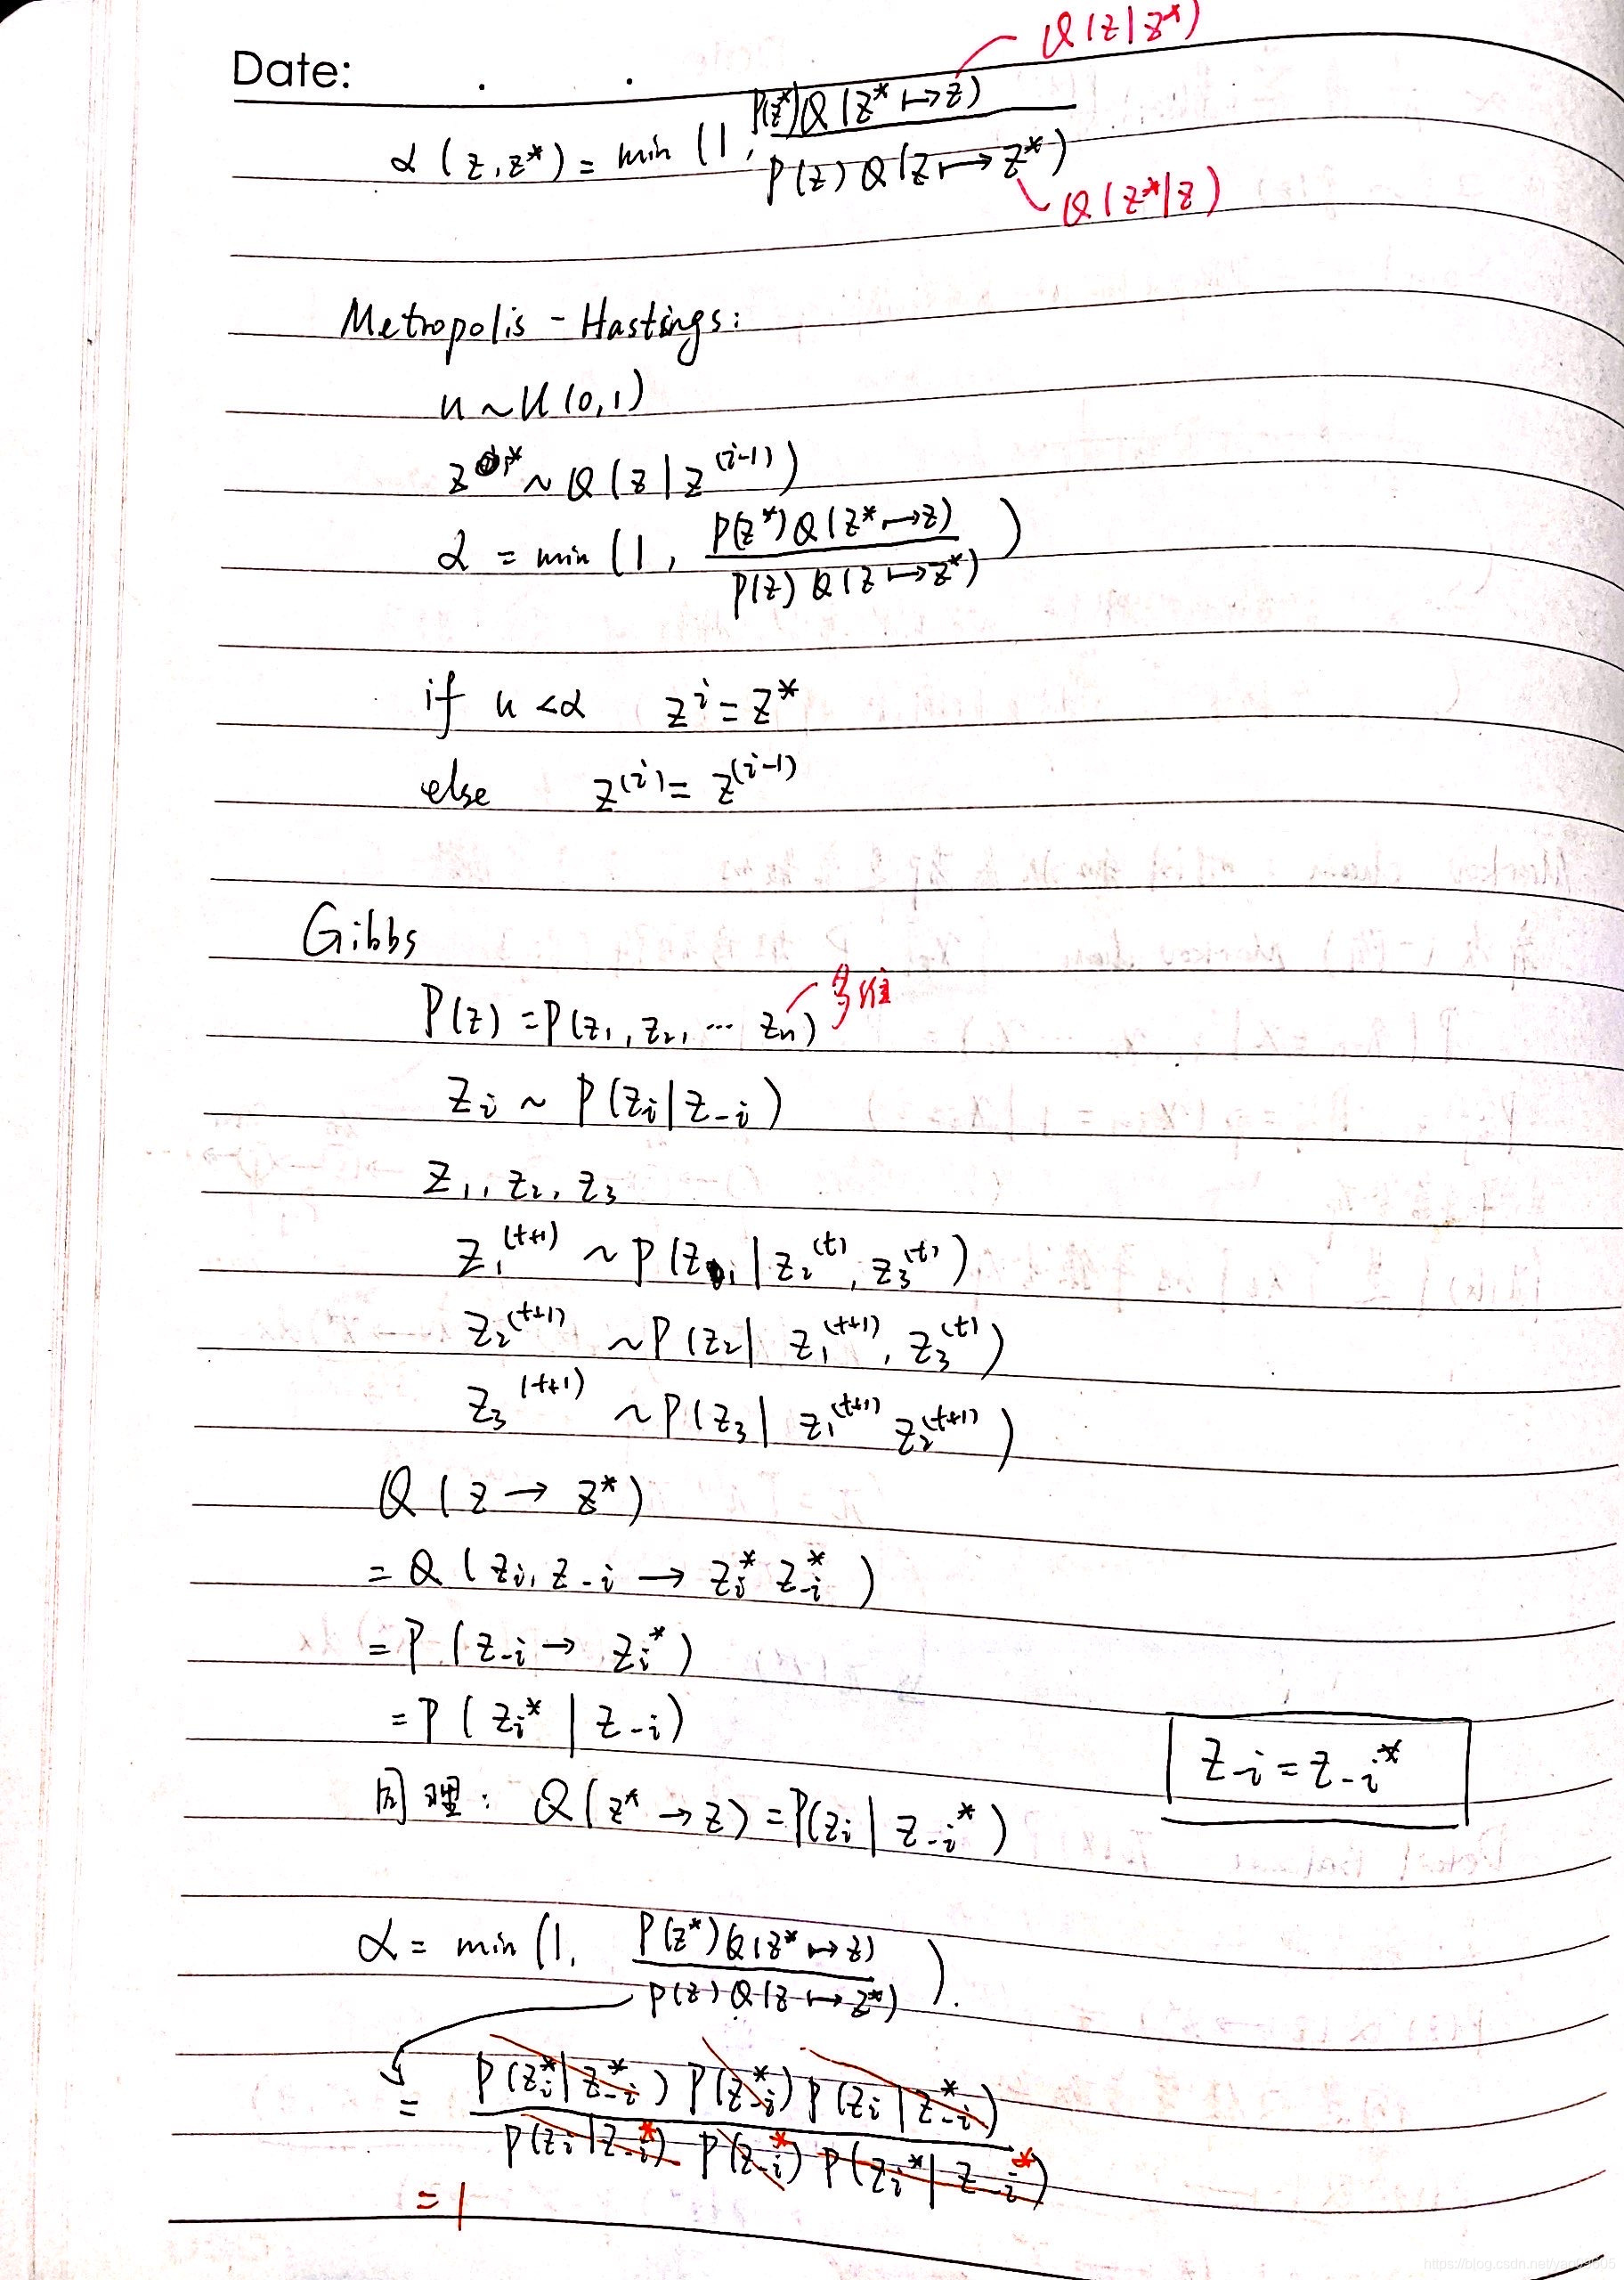 Date: . .
Q(z|z*)
α(z,z*) = min(1, P(z*)Q(z*↦z) / P(z)Q(z↦z*)
Q(z*|z)
Metropolis - Hastings:
u ~ U(0,1)
z* ~ Q(z|z^(i-1))
α = min(1, P(z*)Q(z*↦z) / P(z)Q(z↦z*))
if u<α z^i = z*
else z^(i) = z^(i-1)
Gibbs
P(z) = P(z₁, z₂, ... zₙ) 多维
z_i ~ P(z_i|z_-i)
z₁, z₂, z₃
z₁^(t+1) ~ P(z₁|z₂^(t), z₃^(t))
z₂^(t+1) ~ P(z₂| z₁^(t+1), z₃^(t))
z₃^(t+1) ~ P(z₃| z₁^(t+1) z₂^(t+1))
Q(z → z*)
= Q(z_i, z_-i → z_i* z_-i*)
= P(z_-i → z_i*)
= P(z_i* | z_-i)
z_-i = z_-i*
同理: Q(z* → z) = P(z_i | z_-i*)
α = min(1, P(z*)Q(z*↦z) / P(z)Q(z↦z*)).
= P(z_i*|z_-i*) P(z_-i*) P(z_i|z_-i*) / P(z_i|z_-i*) P(z_-i*) P(z_i*|z_-i*)
= 1